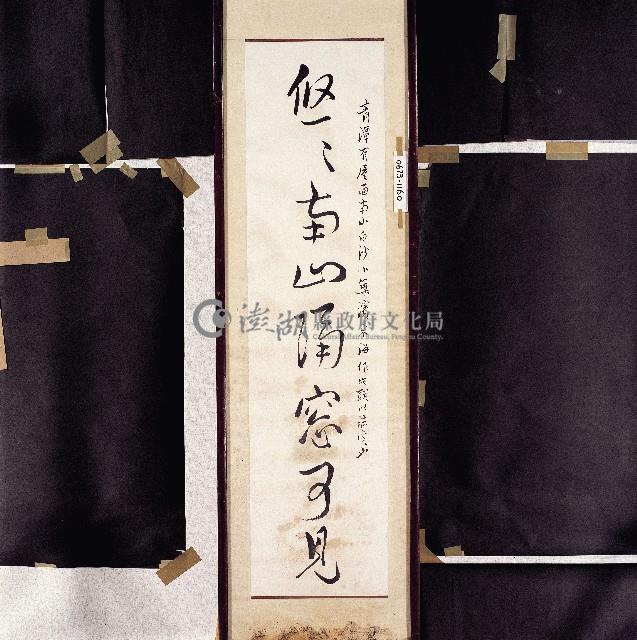 悠〻南山隔窓可見
青潭有屋面南山白沙
0673-1160
澎湖縣政府文化局
Cultural Affairs Bureau, Penghu County.